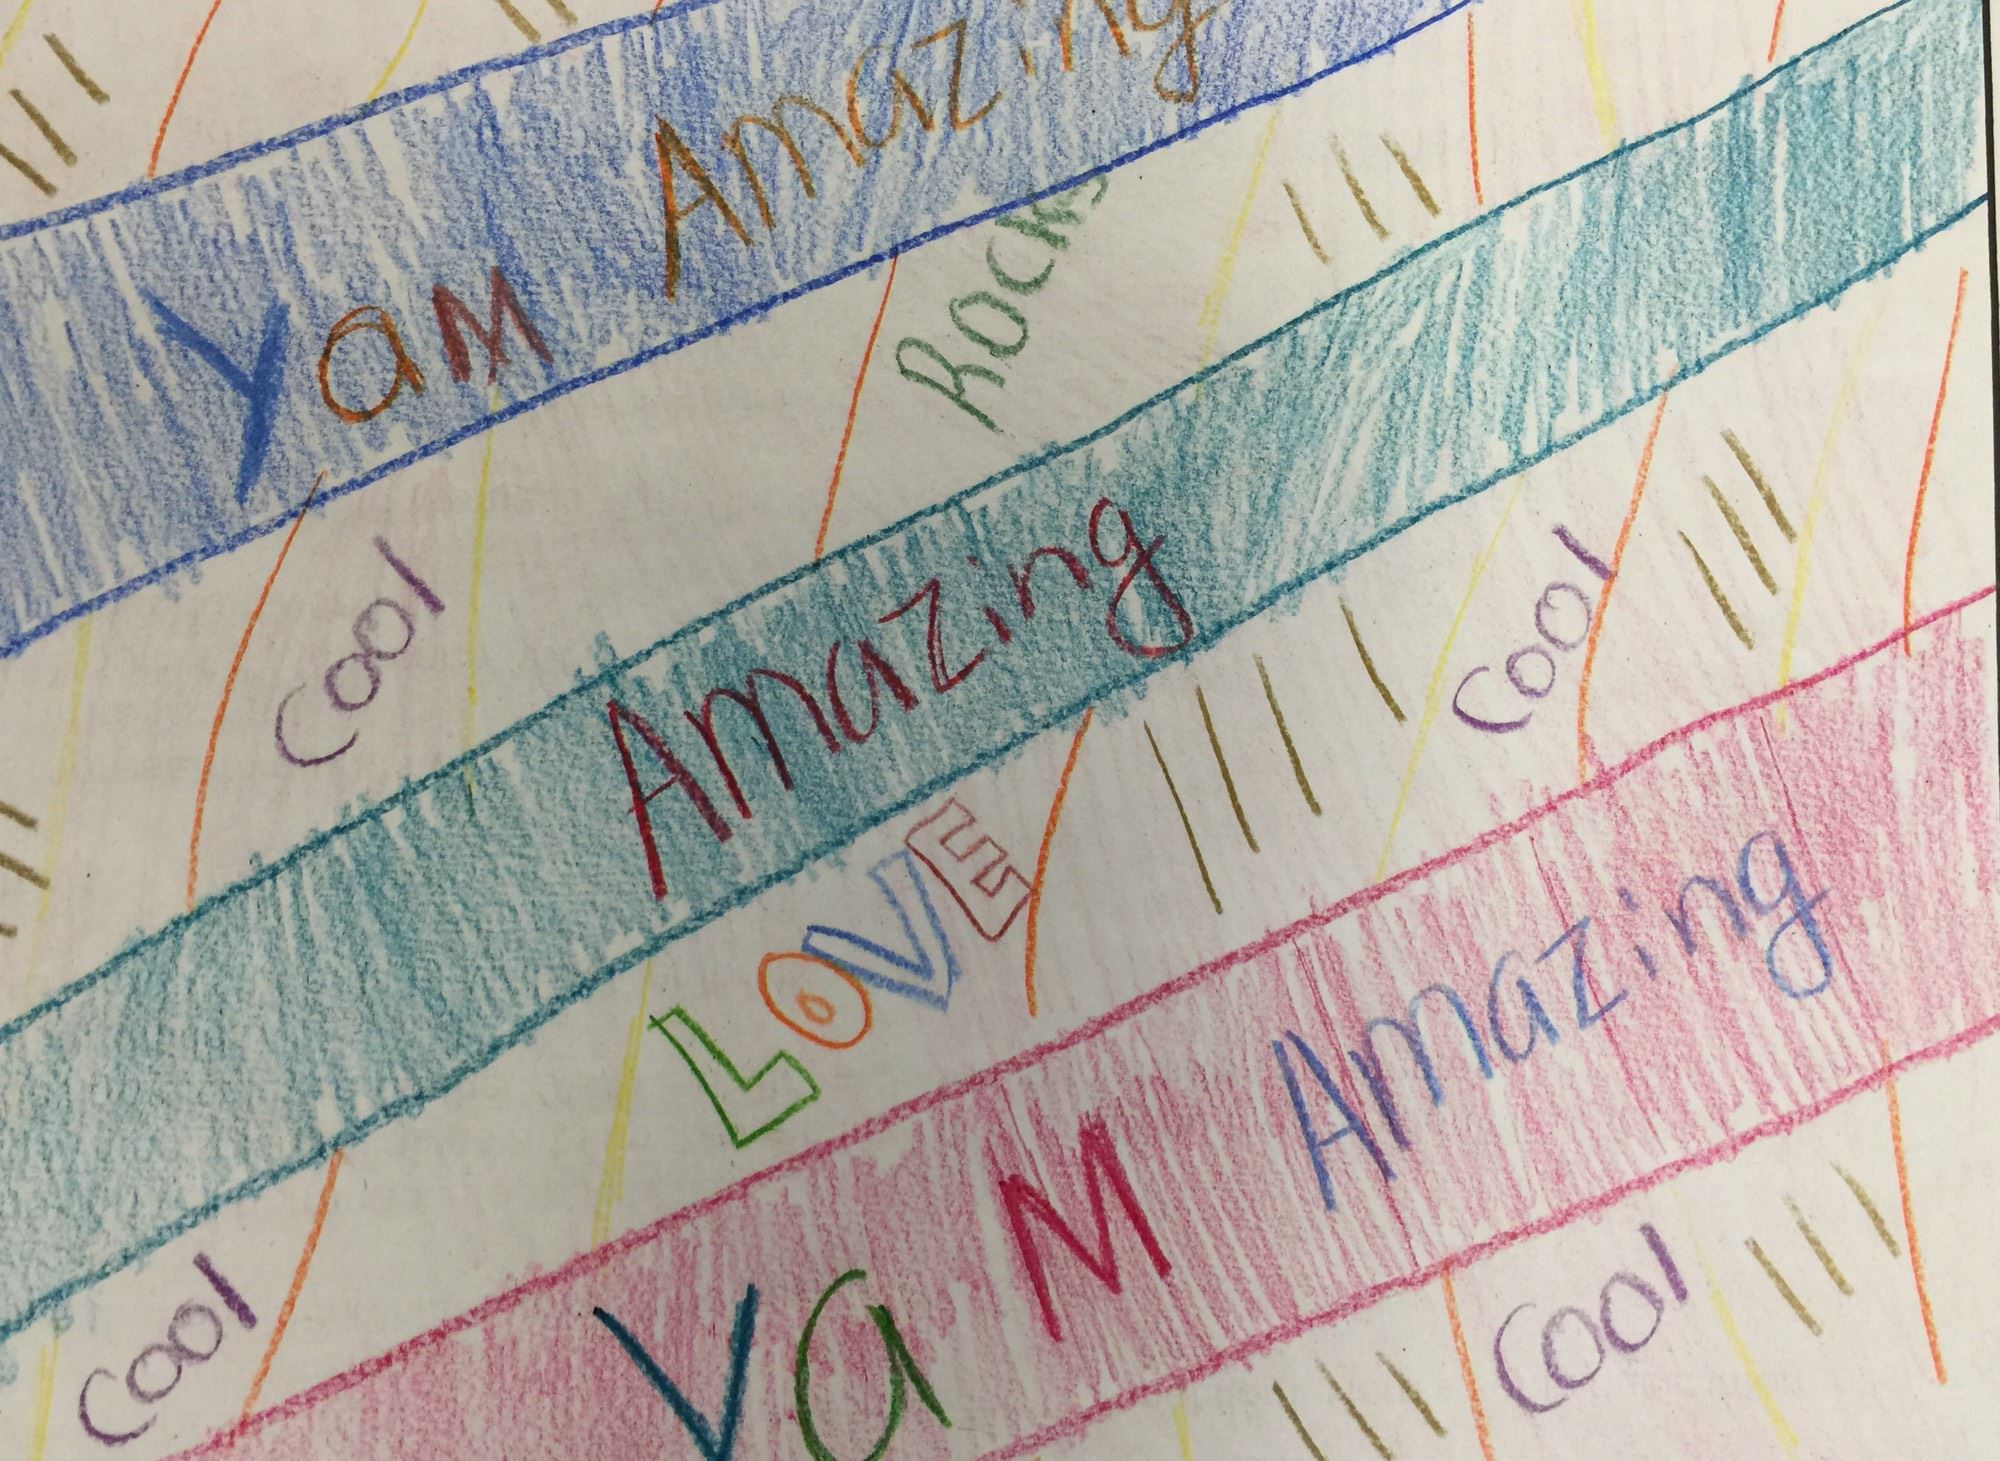 Yam Amazing
Rocks
Cool
Amazing
Cool
LOVE
Cool
Yam Amazing
Cool